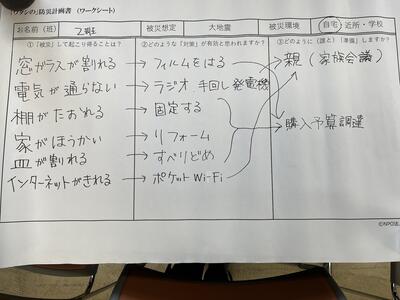 「ワタシの」防災計画書 (ワークシート)
お名前 (班) 2班 被災想定 大地震 被災環境 自宅・近所・学校
①「被災」して起こり得ることは? ②どのような「対策」が有効と思われますか? ③どのように (誰と) 「準備」しますか?
窓ガラスが割れる → フィルムをはる 親 (家族会議)
電気が通らない → ラジオ 手回し発電機
棚がたおれる → 固定する
購入予算調達
家がほうかい → リフォーム
皿が割れる → すべりどめ
インターネットがきれる → ポケット Wi-Fi
©NPO法